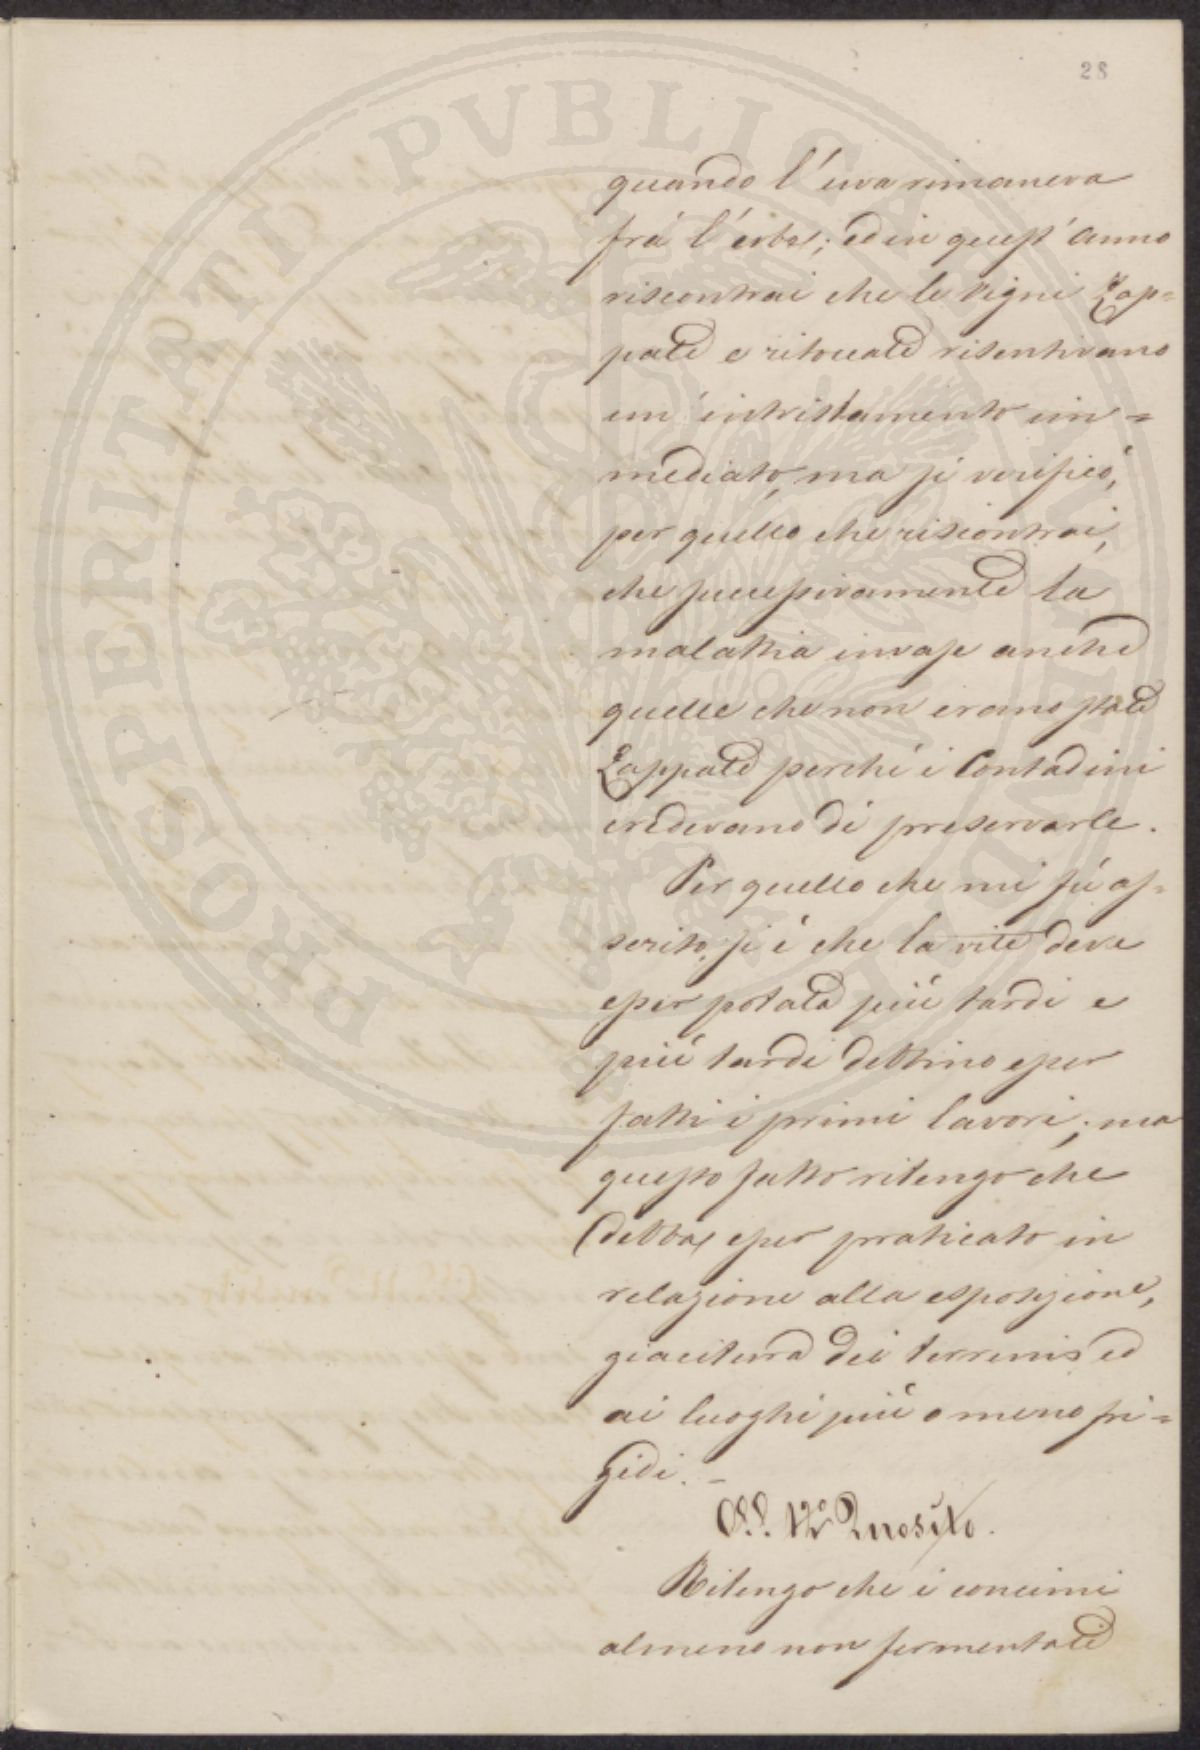 28
PROSPERITATI PVBLICAE
quando l'uva rimaneva
frà l'erba; ed in quest'anno
riscontrai che le Vigni Zap=
pate e ritoccate risentivano
un'intristamento im=
mediato, ma si verificò,
per quello che riscontrai,
che successivamente la
malattia invase anche
quelle che non erano state
Zappate perché i Contadini
credevano di preservarle.
Per quello che mi fù as=
serito, si è che la vite deve
esser potata più tardi e
più tardi debbino esser
fatti i primi lavori; ma
questo fatto ritengo che
debba esser praticato in
relazione alla esposizione,
giacitura dei terreni ed
ai luoghi più o meno fri=
gidi. –
12º Quesito.
Ritengo che i concimi
almeno non fermentati